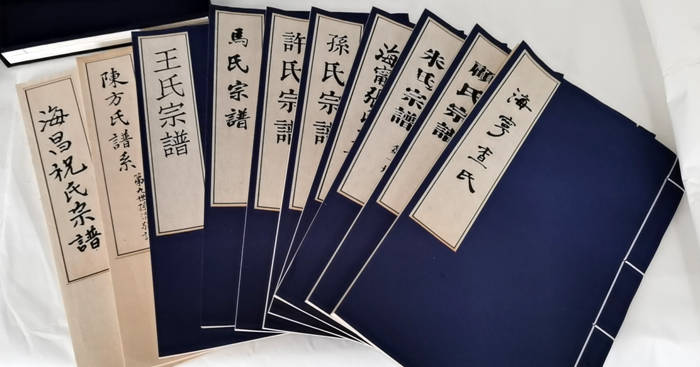 海昌祝氏宗譜
陳方氏譜系
王氏宗譜
馬氏宗譜
許氏宗譜
孫氏宗譜
海寧張氏
朱氏宗譜
顧氏宗譜
海寧查氏